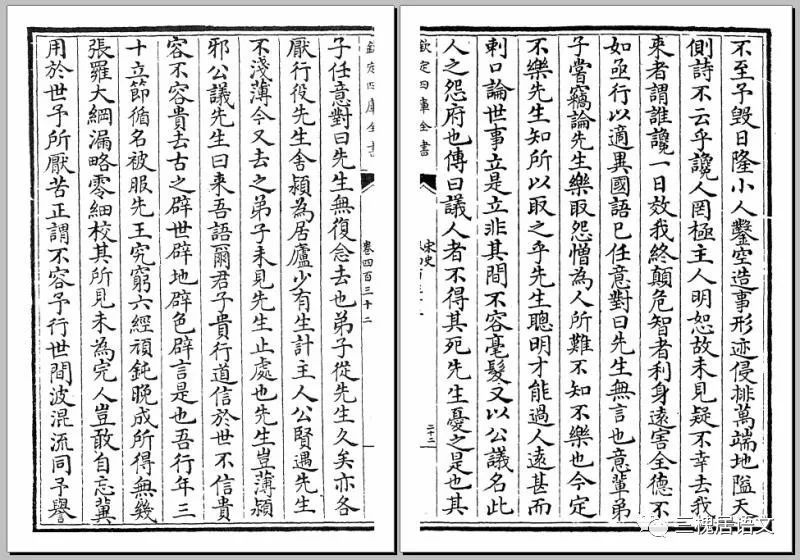 不至予毀日隆小人鑿空造事形迹侵排萬端地隘天
側詩不云乎讒人罔極主人明恕故未見疑不幸去我
來者謂誰讒一日效我終顛危智者利身遠害全德不
如亟行以適異國語已任意對曰先生無言也意輩弟
子嘗竊論先生樂取怨憎為人所難不知不樂也今定
不樂先生知所以取之乎先生聰明才能過人遠甚而
刺口論世事立是立非其間不容毫髮又以公議名此
人之怨府也傳曰議人者不得其死先生憂之是也其
欽定四庫全書
宋史
二十二
欽定四庫全書
卷四百三十二
子任意對曰先生無復念去也弟子從先生久矣亦各
厭行役先生舍潁為居廬少有生計主人公賢遇先生
不淺薄今又去之弟子未見先生止處也先生豈薄潁
邪公議先生曰來吾語爾君子貴行道信於世不信貴
容不容貴去古之辟世辟地辟色辟言是也吾行年三
十立節循名被服先王究窮六經頑鈍晚成所得無幾
張羅大綱漏略零細校其所見未為完人豈敢自忘冀
用於世予所厭苦正謂不容予行世間波混流同予譽
三槐居语文